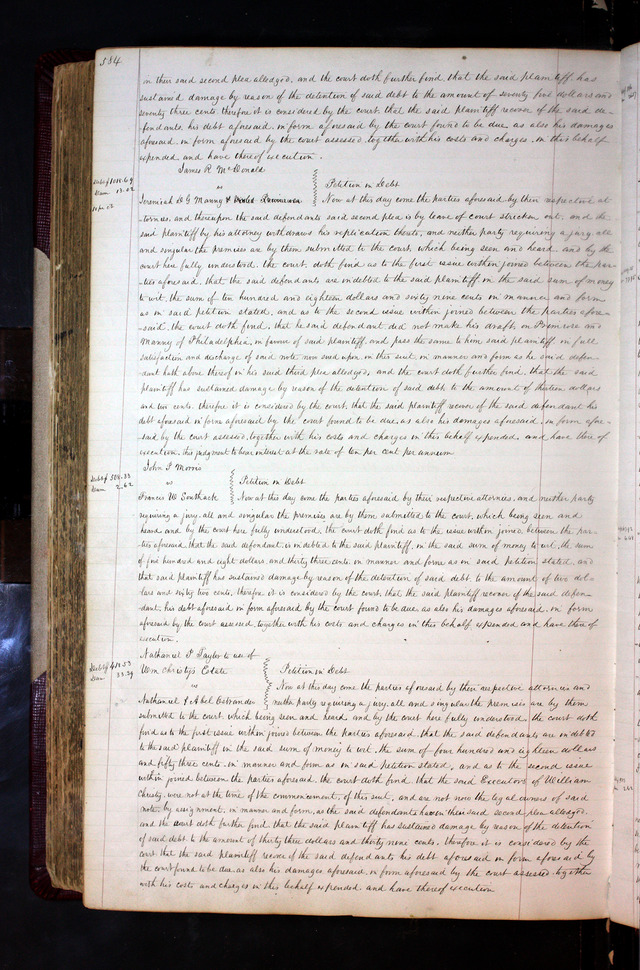 554
in their said second plea alledged. and the court doth further find, that the said plaintiff has
sustained damage by reason of the detention of said debt to the amount of seventy five dollars and
seventy three cents therefore it is considered by the court that the said plaintiff recover of the said de-
fendants his debt aforesaid. in form aforesaid by the court found to be due as also his damages
aforesaid. in form aforesaid by the court assessed. together with his costs and charges. in this behalf
expended and have there of execution.
James R McDonald
vs Petition in Debt
Debt $1018.69
Dam 13.02
10 pr ct
Jeremiah D G Manny & Now at this day come the parties aforesaid by their respective at-
tornies, and thereupon the said defendants said second plea is by leave of court stricken out, and the
said plaintiff by his attorney withdraws his replication thereto, and neither party requiring a jury all
and singular the premises are by them submitted to the court, which being seen and heard, and by the
court here fully understood. the court doth find as to the first issue within joined between the par-
ties aforesaid, that the said defendants are indebted to the said plaintiff in the said sum of money
to wit, the sum of ten hundred and eighteen dollars and sixty nine cents in manner and form
as in said petition stated, and as to the second issue within joined between the parties afore-
said. the court doth find, that he said defendant did not make his draft, on Primrose and
Manny of Philadelphia, in favour of said plaintiff, and pass the same to him, said plaintiff. in full
satisfaction and discharge of said note now sued upon, in this suit, in manner and form as he said defen-
dant hath above thereof in his said third plea alledged, and the court doth further find, that the said
plaintiff has sustained damage by reason of the detention of said debt, to the amount of thirteen dollars
and two cents. therefore it is considered by the court, that the said plaintiff recover of the said defendant his
debt aforesaid in form aforesaid by the court found to be due, as also his damages aforesaid, in form afore-
said by the court assessed, together with his costs and charges in this behalf expended, and have there of
execution, this judgment to bear interest at the rate of ten per cent per annum
John P Morris
vs Petition in Debt
Debt $508.33
Dam 2.62
Francis W Southack Now at this day come the parties aforesaid by their respective attornies. and, neither party
requiring a jury, all and singular the premises are by them submitted to the court, which being seen and
heard and by the court here fully understood, the court doth find as to the issue within joined between the par-
ties aforesaid, that the said defendant is indebted to the said plaintiff, in the said sum of money to wit, the sum
of five hundred and eight dollars, and thirty three cents. in manner and form as in said petition stated, and
that said plaintiff has sustained damage by reason of the detention of said debt. to the amount of two dol-
lars and sixty two cents, therefore it is considered by the court, that the said plaintiff recover of the said defen-
dant, his debt aforesaid in form aforesaid by the court found to be due, as also his damages aforesaid, in form
aforesaid by the court assessed, together with his costs and charges in this behalf expended and have there of
execution.
Nathaniel P Taylor to use of
Debt $418.53
Dam 33.39
Wm Christy's Estate Petition in Debt
vs Now at this day come the parties aforesaid by their respective attornies and
Nathaniel & Abel Ostrander neither party requiring a jury, all and singular the premises are by them
submitted to the court, which being seen and heard, and by the court here fully understood. the court doth
find as to the first issue within joined between the parties aforesaid, that the said defendants are indebted
to the said plaintiff in the said sum of money to wit, the sum of four hundred and eighteen dollars
and fifty three cents. in manner and form as in said petition stated, and as to the second issue
within joined between the parties aforesaid, the court doth find, that the said Executors of William
Christy, were not at the time of the commencement of this suit, and are not now the legal owners of said
note, by assignment, in manner and form, as the said defendants have in their said second plea alledged.
and the court doth further find that the said plaintiff has sustained damage by reason of the detention
of said debt to the amount of thirty three dollars and thirty nine cents. therefore it is considered by the
court that the said plaintiff recover of the said defendants his debt aforesaid in form aforesaid by
the court found to be due. as also his damages aforesaid. in form aforesaid by the court assessed. together
with his costs and charges in this behalf expended. and have thereof execution